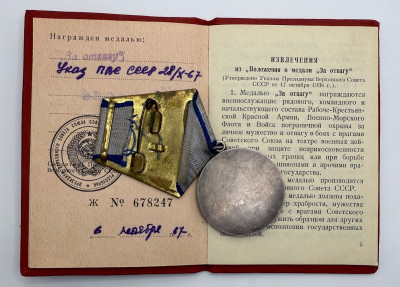 Награжден медалью:
„За отвагу“
Указ ПВС СССР 28/X-67
Ж № 678247
6 ноября 67
ИЗВЛЕЧЕНИЯ
из „Положения о медали „За отвагу“
(Утверждено Указом Президиума Верховного Совета
СССР от 17 октября 1938 г.)
1. Медалью „За отвагу“ награждаются
военнослужащие рядового, командного и
начальствующего состава Рабоче-Крестьян-
ской Красной Армии, Военно-Морского
Флота и Войск пограничной охраны за
личное мужество и отвагу в боях с врагами
Советского Союза на театре военных дей-
при защите неприкосновенности
ных границ или при борьбе
государства.
медалью производится
ховного Совета СССР.
медалью должны пода-
храбрости, мужества
с врагами Советского
образцом для других
государственных
5